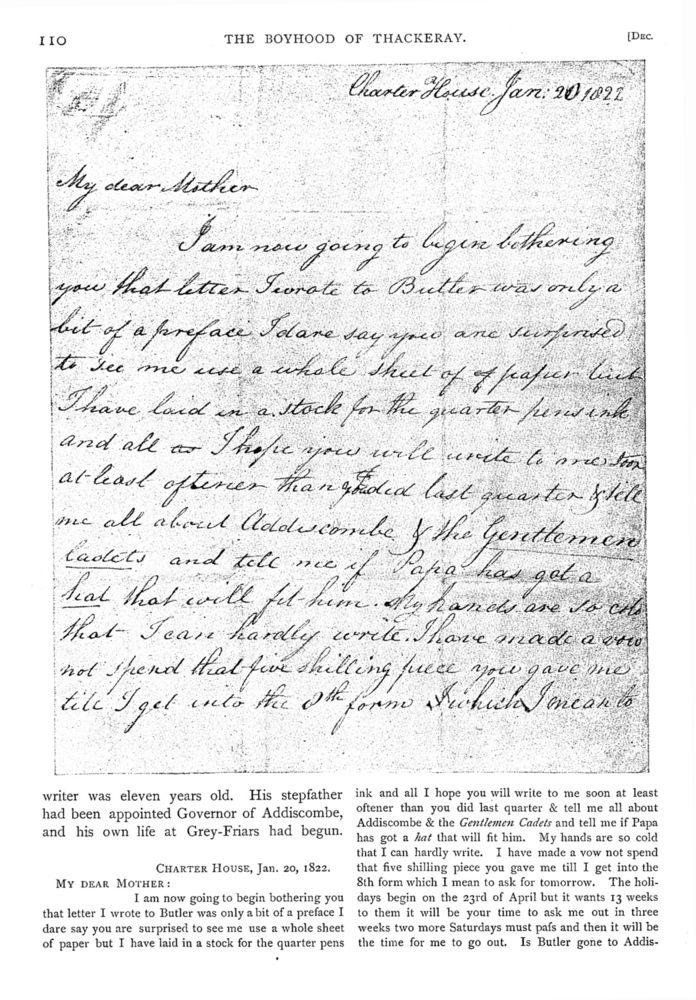 110
THE BOYHOOD OF THACKERAY.
[DEC.
Charter House. Jan: 20 1822
My dear Mother
I am now going to begin bothering
you that letter I wrote to Butler was only a
bit of a preface I dare say you are surprised
to see me use a whole sheet of of paper but
I have laid in a stock for the quarter pens ink
and all as I hope you will write to me soon
at least oftener than you did last quarter & tell
me all about Addiscombe & the Gentlemen
Cadets and tell me if Papa has got a
hat that will fit him. My hands are so cold
that I can hardly write. I have made a vow
not spend that five shilling piece you gave me
till I get into the 8th form which I mean to
writer was eleven years old. His stepfather
had been appointed Governor of Addiscombe,
and his own life at Grey-Friars had begun.
CHARTER HOUSE, Jan. 20, 1822.
MY DEAR MOTHER:
I am now going to begin bothering you
that letter I wrote to Butler was only a bit of a preface I
dare say you are surprised to see me use a whole sheet
of paper but I have laid in a stock for the quarter pens
ink and all I hope you will write to me soon at least
oftener than you did last quarter & tell me all about
Addiscombe & the Gentlemen Cadets and tell me if Papa
has got a hat that will fit him. My hands are so cold
that I can hardly write. I have made a vow not spend
that five shilling piece you gave me till I get into the
8th form which I mean to ask for tomorrow. The holi-
days begin on the 23rd of April but it wants 13 weeks
to them it will be your time to ask me out in three
weeks two more Saturdays must pafs and then it will be
the time for me to go out. Is Butler gone to Addis-